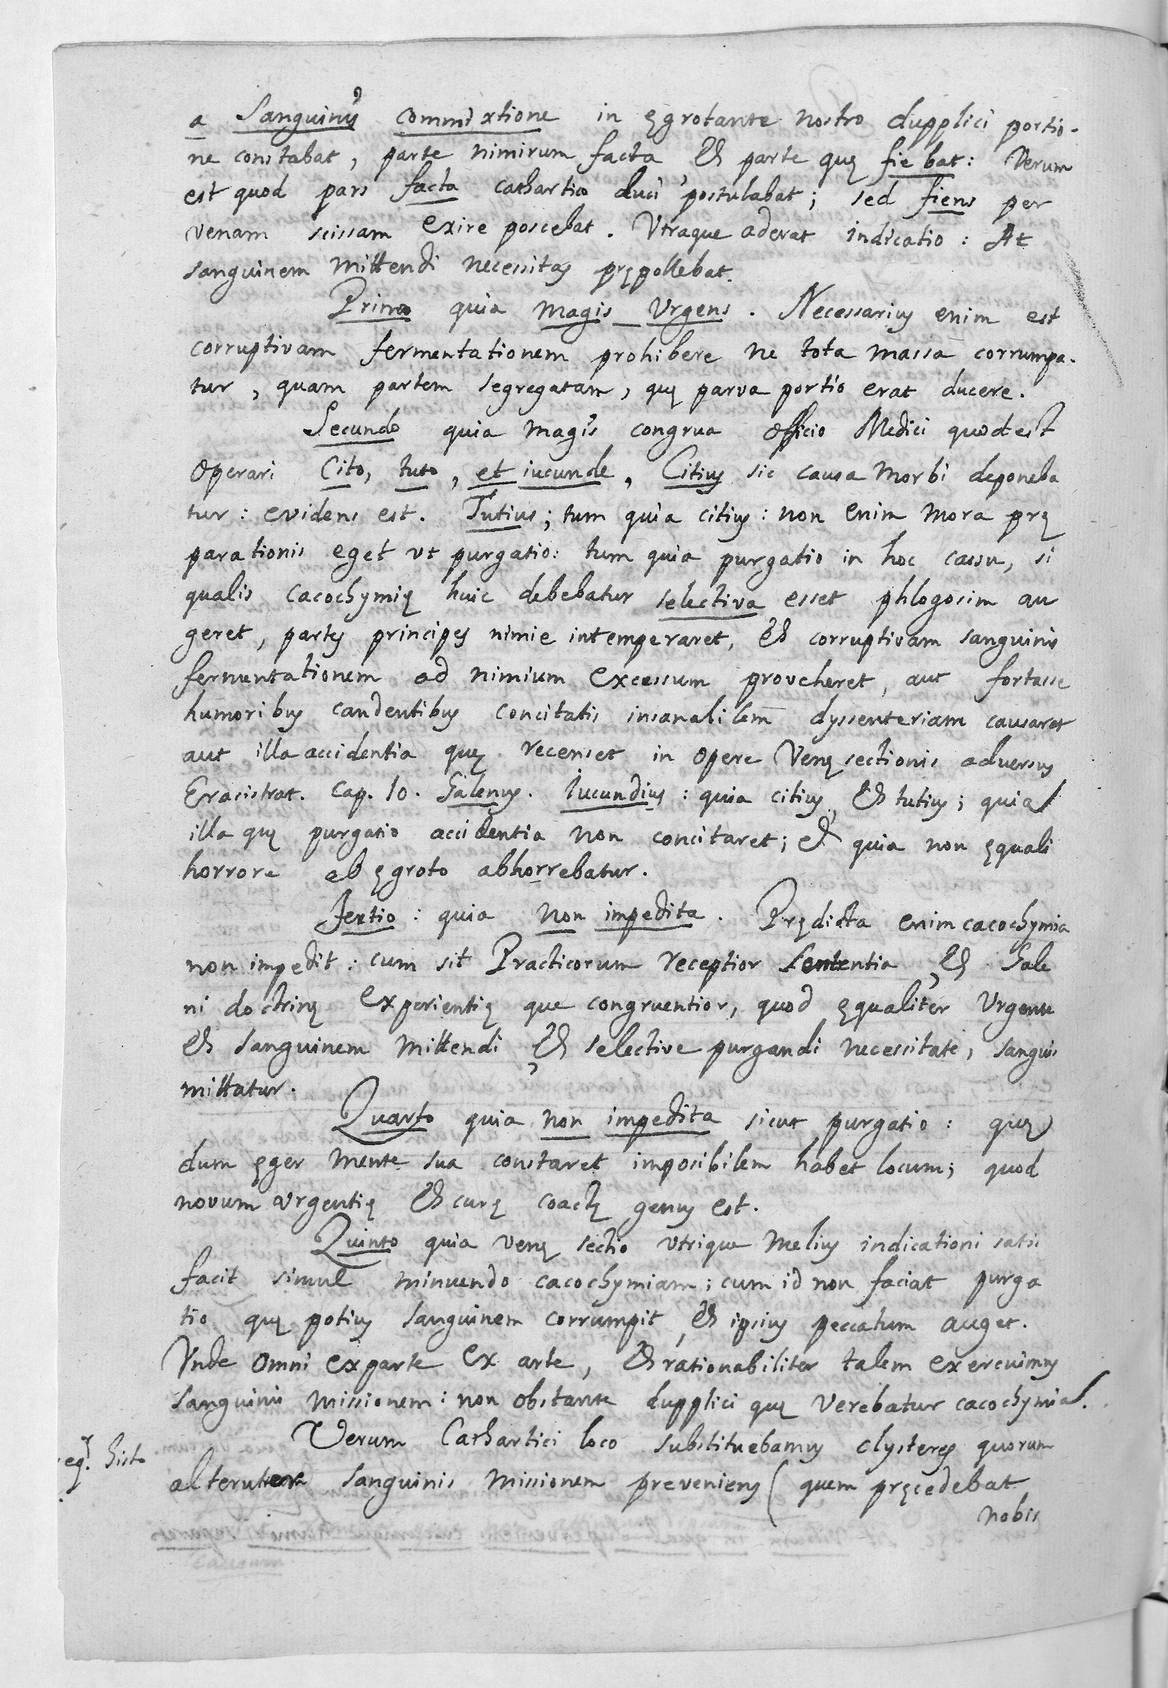 a Sanguinis commixtione in ęgrotante nostro dupplici portio-
ne constabat, parte nimirum facta & parte quę fiebat: Verum
est quod pars facta cathartico duci postulabat; sed fiens per
venam scissam exire poscebat. Vtraque aderat indicatio: At
sanguinem mittendi necessitas prępollebat.
Primo quia magis Vrgens. Necessarius enim est
corruptivam fermentationem prohibere ne tota massa corrumpa-
tur, quam partem segregatam, quę parva portio erat ducere.
Secundo quia magis congrua officio Medici quod est
operari Cito, tuto, et iucunde, Citius sic causa morbi deponeba
tur: evidens est. Tutius; tum quia citius: non enim mora prę
parationis eget vt purgatio: tum quia purgatio in hoc cassu, si
qualis cacochymię huic debebatur selectiva esset phlogosim au
geret, partes principes nimie intemperaret, & corruptivam sanguinis
fermentationem ad nimium excessum proveheret, aut fortasse
humoribus candentibus concitatis insanabilem dyssenteriam causaret
aut illa accidentia quę recenset in opere Venę sectionis adversus
Erasistrat. Cap. 10. Galenus. Iucundius: quia citius, & tutius; quia
illa quę purgatio accidentia non concitaret; & quia non ęquali
horrore ab ęgroto abhorrebatur.
Tertio: quia non impedita. Prędicta enim cacochymia
non impedit: cum sit Practicorum receptior Sententia, & Gale
ni doctrinę experientię que congruentior, quod ęqualiter Vrgente
& sanguinem mittendi, & selective purgandi necessitate, sanguis
mittatur.
Quarto quia non impedita sicut purgatio: quę
dum ęger mente sua constaret imposibilem habet locum; quod
novum vrgentię & curę coactę genus est.
Quinto quia venę sectio vtrique melius indicationi satis
facit simul minuendo cacochymiam; cum id non faciat purga
tio quę potius sanguinem corrumpit, & ipsius peccatum auget.
Vnde omni ex parte ex arte, & rationabiliter talem exercuimus
sanguinis missionem: non obstante dupplici quę verebatur cacochymia.
Verum Cathartici loco substituebamus clysteres quorum
eq. histo
alteruter sanguinis missionem preveniens (quem pręcedebat
nobis